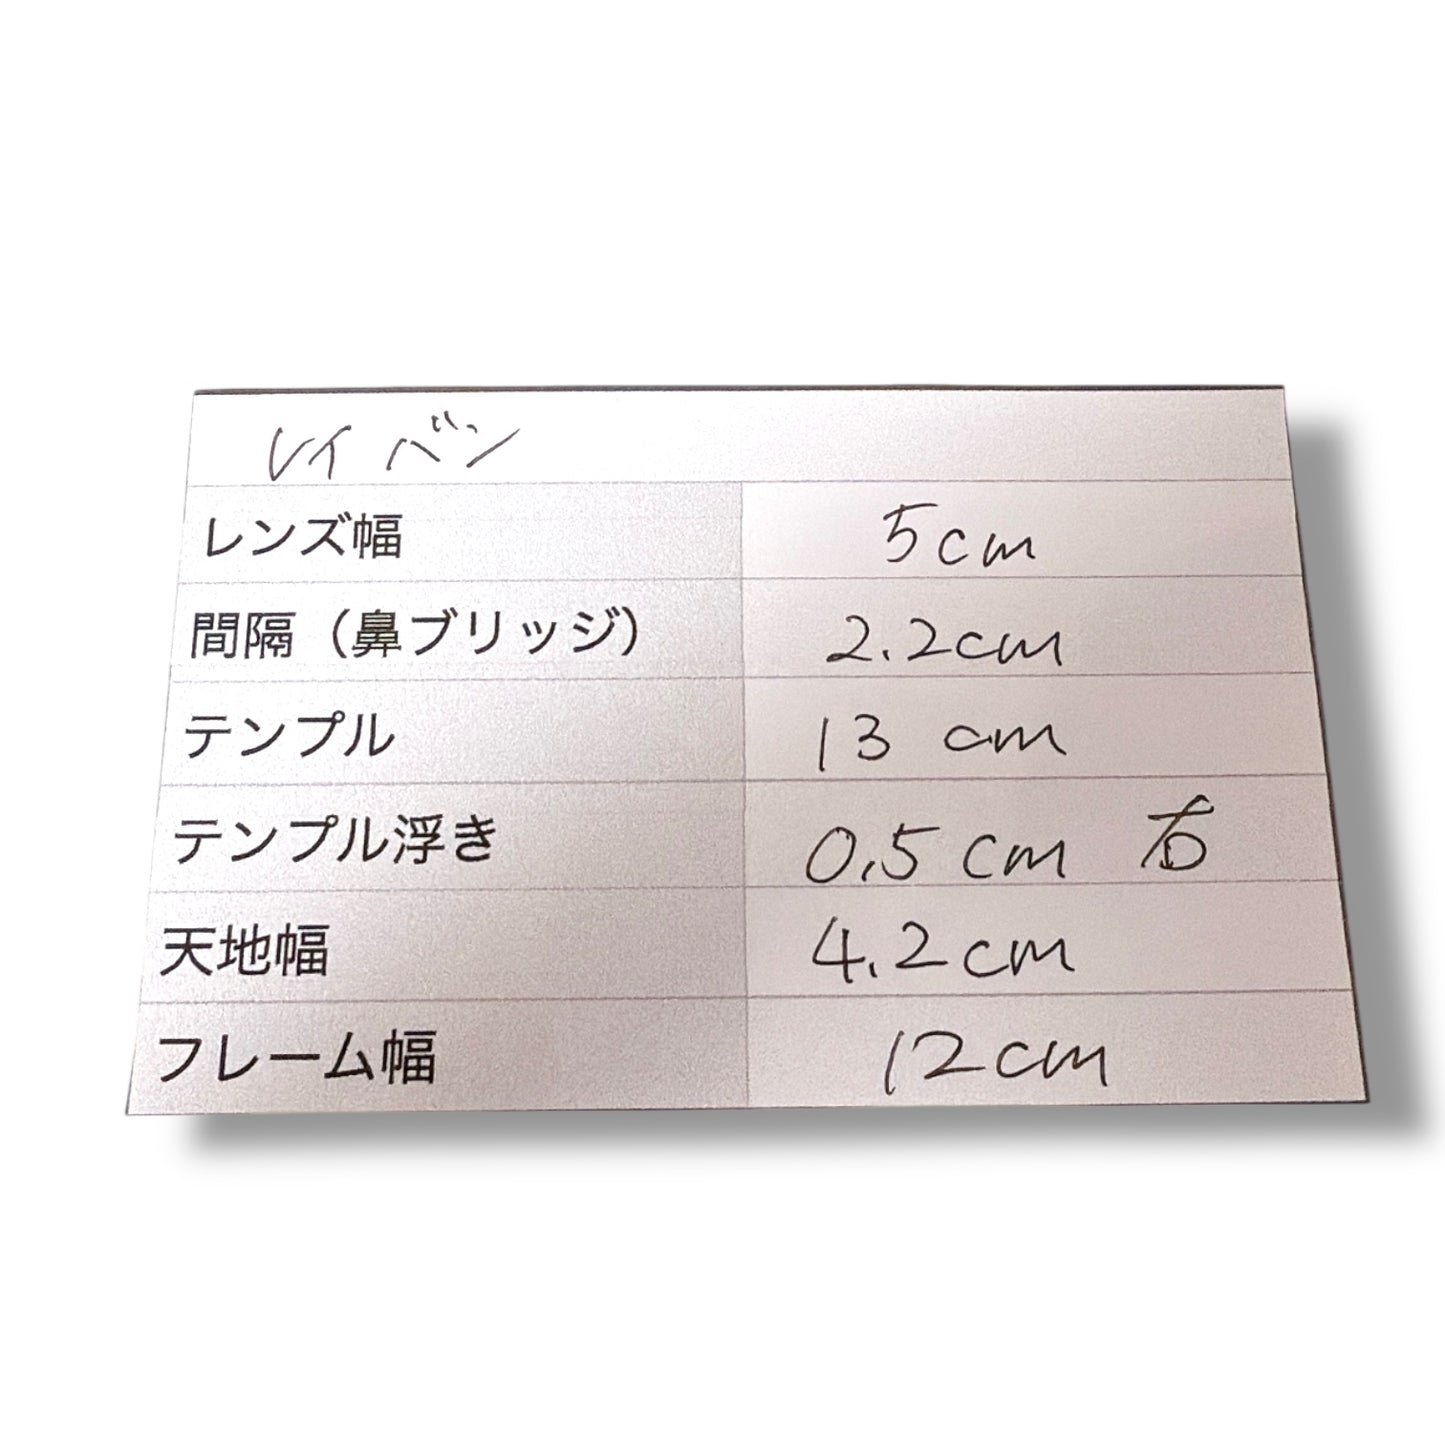 レイバン
レンズ幅 5cm
間隔（鼻ブリッジ） 2.2cm
テンプル 13cm
テンプル浮き 0.5cm 右
天地幅 4.2cm
フレーム幅 12cm